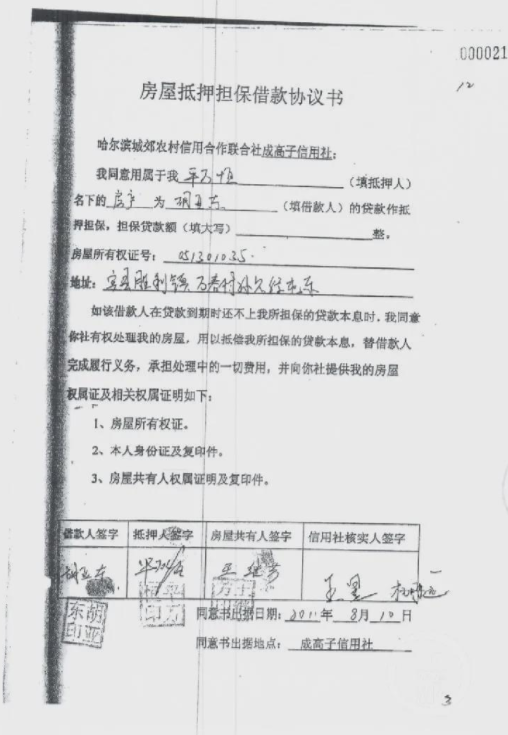 000021
12
房屋抵押担保借款协议书
哈尔滨城郊农村信用合作联合社成高子信用社:
我同意用属于我 (填抵押人)
名下的 房产 为 胡亚东 (填借款人)的贷款作抵
押担保,担保贷款额(填大写) 整。
房屋所有权证号: 051301035
地址: 宾县胜利镇万
如该借款人在贷款到期时还不上我所担保的贷款本息时,我同意
你社有权处理我的房屋,用以抵偿我所担保的贷款本息,替借款人
完成履行义务,承担处理中的一切费用,并向你社提供我的房屋
权属证及相关权属证明如下:
1、房屋所有权证。
2、本人身份证及复印件。
3、房屋共有人权属证明及复印件。
借款人签字 抵押人签字 房屋共有人签字 信用社核实人签字
胡亚东
东胡
印亚
同意书出据日期: 2011年 8月 10日
同意书出据地点: 成高子信用社
3